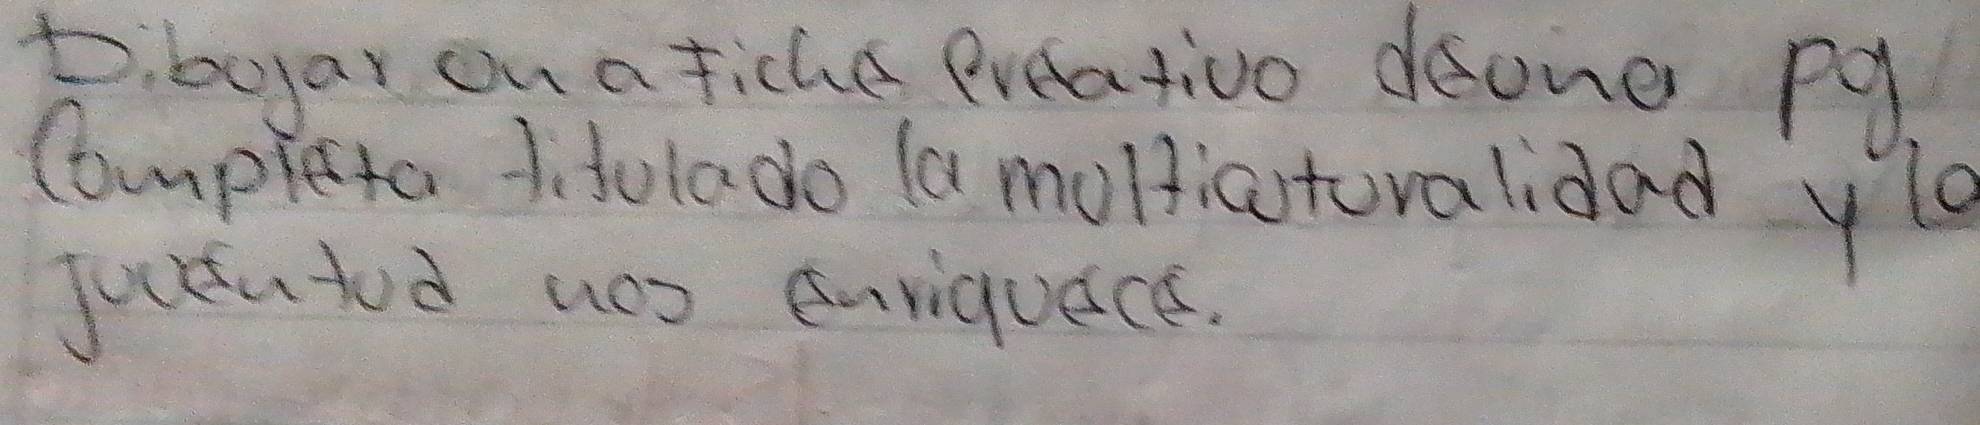 Dibujar un afiche creativo de una pg
Completa titulado la multiculturalidad y la
juventud nos enriquece.